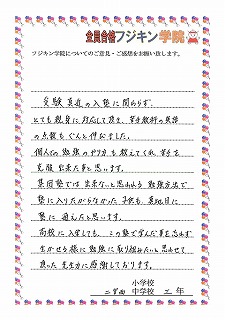 全員合格フジキン学院
フジキン学院についてのご意見・ご感想をお願い致します。
受験直前の入塾に関わらず、
とても親身に対応して頂き、苦手教科の英語
の点数もぐんと伸びました。
個人での勉強のやり方も教えてくれ、苦手を
克服出来たと思います。
集団塾では出来ないと思われる勉強方法で
塾に入りたがらなかった子供も、真面目に
塾に通えたと思います。
高校に入学しても、この塾で学んだ事を忘れず
生かせる様に勉強に取り組みたいと思わせて
頂いた先生方に感謝しております。
小学校
中学校 三年